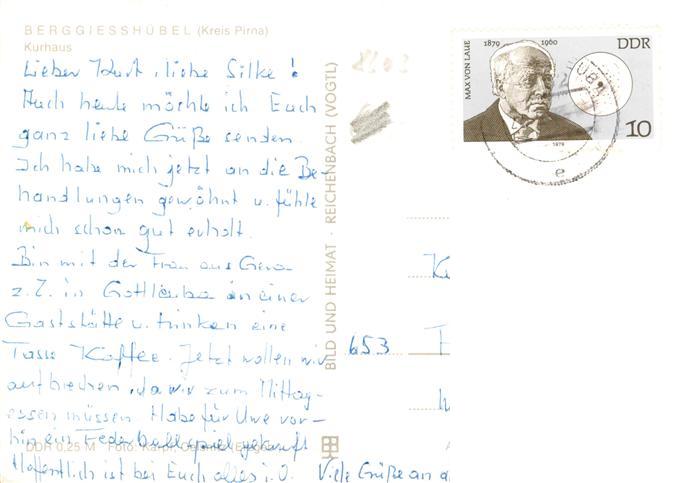 BERGGIESSHÜBEL (Kreis Pirna)
Kurhaus
Lieber Kurt, liebe Silke!
Auch heute möchte ich Euch
ganz liebe Grüße senden.
Ich habe mich jetzt an die Be-
handlungen gewöhnt u. fühle
mich schon gut erholt.
Bin mit der Frau aus Gera
z. Z. in Gottleuba in einer
Gaststätte u. trinken eine
Tasse Kaffee. Jetzt wollen wir
aufbrechen, da wir zum Mittag-
essen müssen. Habe für Uwe vor-
hin ein Federballspiel gekauft
DDR 0,25 M Foto:
Hoffentlich ist bei Euch alles i. O. Viele Grüße an
BILD UND HEIMAT · REICHENBACH (VOGTL)
MAX VON LAUE
1879 1960
DDR
10
1979
e
653